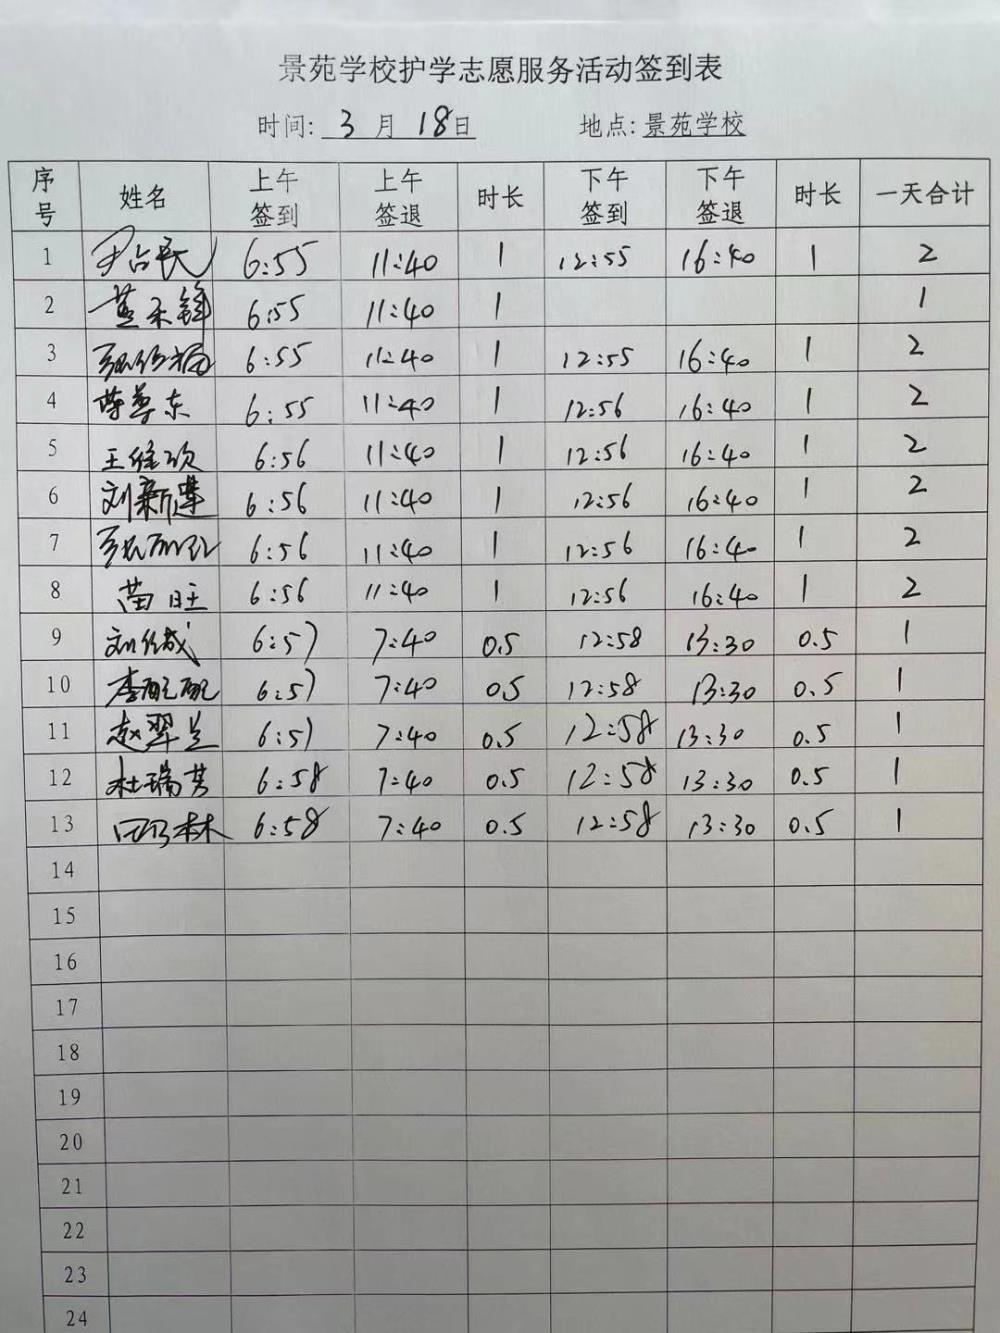 景苑学校护学志愿服务活动签到表
时间: 3 月 18日 地点: 景苑学校
序号 姓名 上午签到 上午签退 时长 下午签到 下午签退 时长 一天合计
1 6:55 11:40 1 12:55 16:40 1 2
2 6:55 11:40 1 1
3 6:55 11:40 1 12:55 16:40 1 2
4 6:55 11:40 1 12:56 16:40 1 2
5 6:56 11:40 1 12:56 16:40 1 2
6 刘新建 6:56 11:40 1 12:56 16:40 1 2
7 6:56 11:40 1 12:56 16:40 1 2
8 苗旺 6:56 11:40 1 12:56 16:40 1 2
9 6:57 7:40 0.5 12:58 13:30 0.5 1
10 李配配 6:57 7:40 0.5 12:58 13:30 0.5 1
11 赵翠兰 6:57 7:40 0.5 12:58 13:30 0.5 1
12 杜瑞芳 6:58 7:40 0.5 12:58 13:30 0.5 1
13 6:58 7:40 0.5 12:58 13:30 0.5 1
14
15
16
17
18
19
20
21
22
23
24